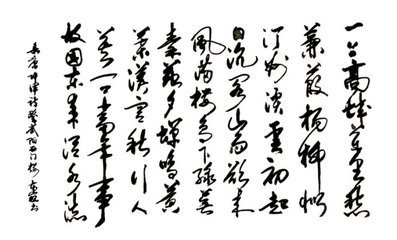 一上高城万里愁
蒹葭楊柳似
汀州溪雲初起
日沉閣山雨欲来
風满楼鸟下绿芜
秦苑夕蝉鸣黄
葉漢宫秋行人
莫问當年事
故國东来渭水流
唐許渾詩登咸阳西门楼